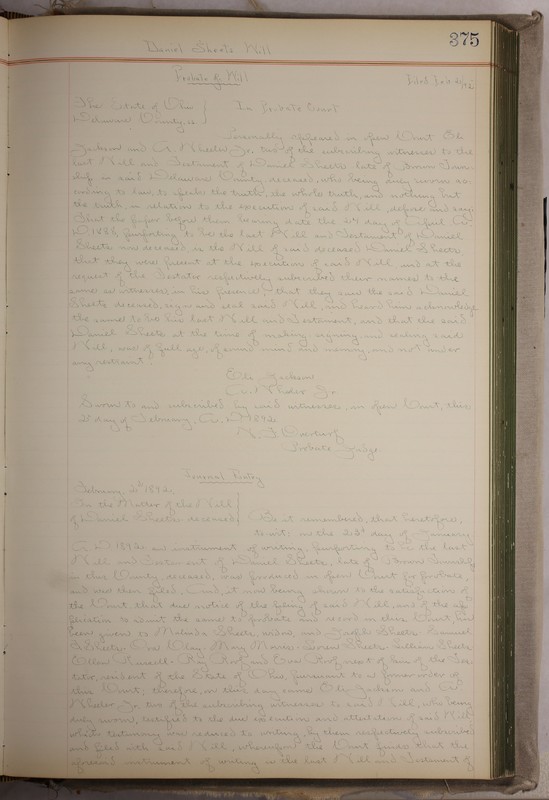 Daniel Sheets Will
375
Probate of Will
Filed
The State of Ohio
Delaware County, ss
In Probate Court
Personally appeared in open Court Eli
Jackson and Wheeler Jr. two of the subscribing witnesses to the
last Will and Testament of Daniel Sheets late of Brown Town-
ship in said Delaware County, deceased, who being duly sworn ac-
cording to law, to speak the truth, the whole truth, and nothing but
the truth, in relation to the execution of said Will, depose and say:
That the paper before them bearing date the day of April A.
D. purporting to be the last Will and Testament of Daniel
Sheets now deceased is the Will of said deceased Daniel Sheets
that they were present at the execution of said Will and at the
request of the Testator respectively subscribed their names to the
same as witnesses in his presence, that they saw the said Daniel
Sheets deceased, sign and seal said Will, and heard him acknowledge
the same to be his last Will and Testament, and that the said
Daniel Sheets at the time of making, signing and sealing said
Will, was of full age, of sound mind and memory, and not under
any restraint.
Eli Jackson
Wheeler Jr.
Sworn to and subscribed by said witnesses, in open Court, this
2d day of February, A. D. 1892
Probate Judge
February 2d 1892
In the Matter of the Will
of Daniel Sheets deceased
Be it remembered, that heretofore,
to wit: on the day of January
A. D. 1892 an instrument of writing, purporting to be the last
Will and Testament of Daniel Sheets, late of Brown Township
in this County deceased, was produced in open Court for probate,
and was then filed, and, it now being shown to the satisfaction of
the Court, that due notice of the filing of said Will, and of the ap-
plication to admit the same to probate and record in this Court, has
been given to Malinda Sheets, widow, and Jacob Sheets, Samuel
Sheets, May Moore, Sheets, William Sheets,
Russell, Ray Roof and Roof next of kin of the Tes-
tator, resident of the State of Ohio, pursuant to a former order of
this Court; therefore, on this day came Eli Jackson and
Wheeler Jr. two of the subscribing witnesses to said Will, who being
duly sworn, testified to the due execution and attestation of said Will
which testimony was reduced to writing, by them respectively subscribed
and filed with said Will, whereupon the Court finds that the
aforesaid instrument of writing is the last Will and Testament of